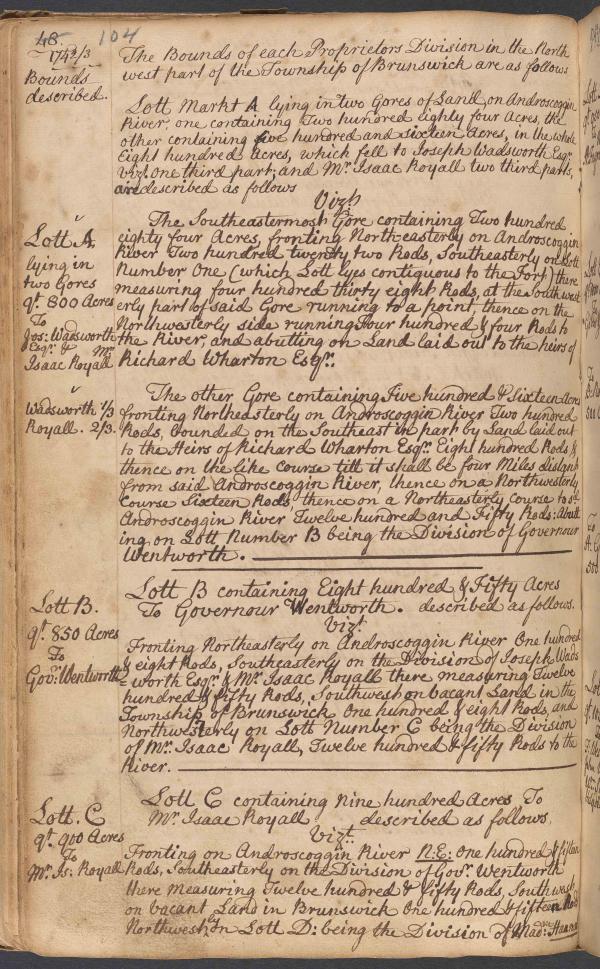 48 104
1742/3
Bounds
described.
The Bounds of each Proprietors Division in the North
west part of the Township of Brunswick are as follows
Lott Markt A lying in two Gores of Land, on Androscoggin
River, one containing Two hundred eighty four Acres, the
other containing five hundred and sixteen Acres, in the whole
Eight hundred Acres, which fell to Joseph Wadsworth Esqr.
vizt. one third part, and Mr. Isaac Royall two third parts,
are described as follows
Vizt.
Lott A,
lying in
two Gores
qt. 800 Acres
To
Jos: Wadsworth
Esqr. & Mr.
Isaac Royall
The Southeastermost Gore containing Two hundred
eighty four Acres, fronting North-easterly on Androscoggin
River Two hundred twenty two Rods, Southeasterly on Lott
Number One (which Lott lyes contiguous to the Fort) there
measuring four hundred thirty eight Rods, at the Southwest
erly part of said Gore running to a point, thence on the
Northwesterly side running four hundred & four Rods to
the River, and abutting on Land laid out to the heirs of
Richard Wharton Esqr.
Wadsworth 1/3
Royall. 2/3.
The other Gore containing Five hundred & Sixteen Acres
fronting Northeasterly on Androscoggin River Two hundred
Rods, bounded on the Southeast in part by Land laid out
to the Heirs of Richard Wharton Esqr. Eight hundred Rods &
thence on the like course till it shall be four Miles distant
from said Androscoggin River, thence on a Northwesterly
Course Sixteen Rods, thence on a Northeasterly course to sd.
Androscoggin River Twelve hundred and Fifty Rods: Abutt
ing on Lott Number B being the Division of Governour
Wentworth.
Lott B.
qt. 850 Acres
To
Gov: Wentworth
Lott B containing Eight hundred & Fifty Acres
To Governour Wentworth. described as follows.
Vizt.
Fronting Northeasterly on Androscoggin River One hundred
& eight Rods, Southeasterly on the Division of Joseph Wads
= worth Esqr. & Mr. Isaac Royall there measuring Twelve
hundred & fifty Rods, Southwest on vacant Land in the
Township of Brunswick One hundred & eight Rods, and
Northwesterly on Lott Number C being the Division
of Mr. Isaac Royall, Twelve hundred & fifty Rods to the
River.
Lott. C
qt. 900 Acres
To
Mr. Is: Royall
Lott C containing Nine hundred Acres To
Mr. Isaac Royall described as follows.
Vizt.
Fronting on Androscoggin River N:E: One hundred & fifteen
Rods, Southeasterly on the Division of Govr. Wentworth
there measuring Twelve hundred & fifty Rods, Southwest
on vacant Land in Brunswick One hundred & fifteen Rods
Northwest, on Lott D: being the Division of Madm.